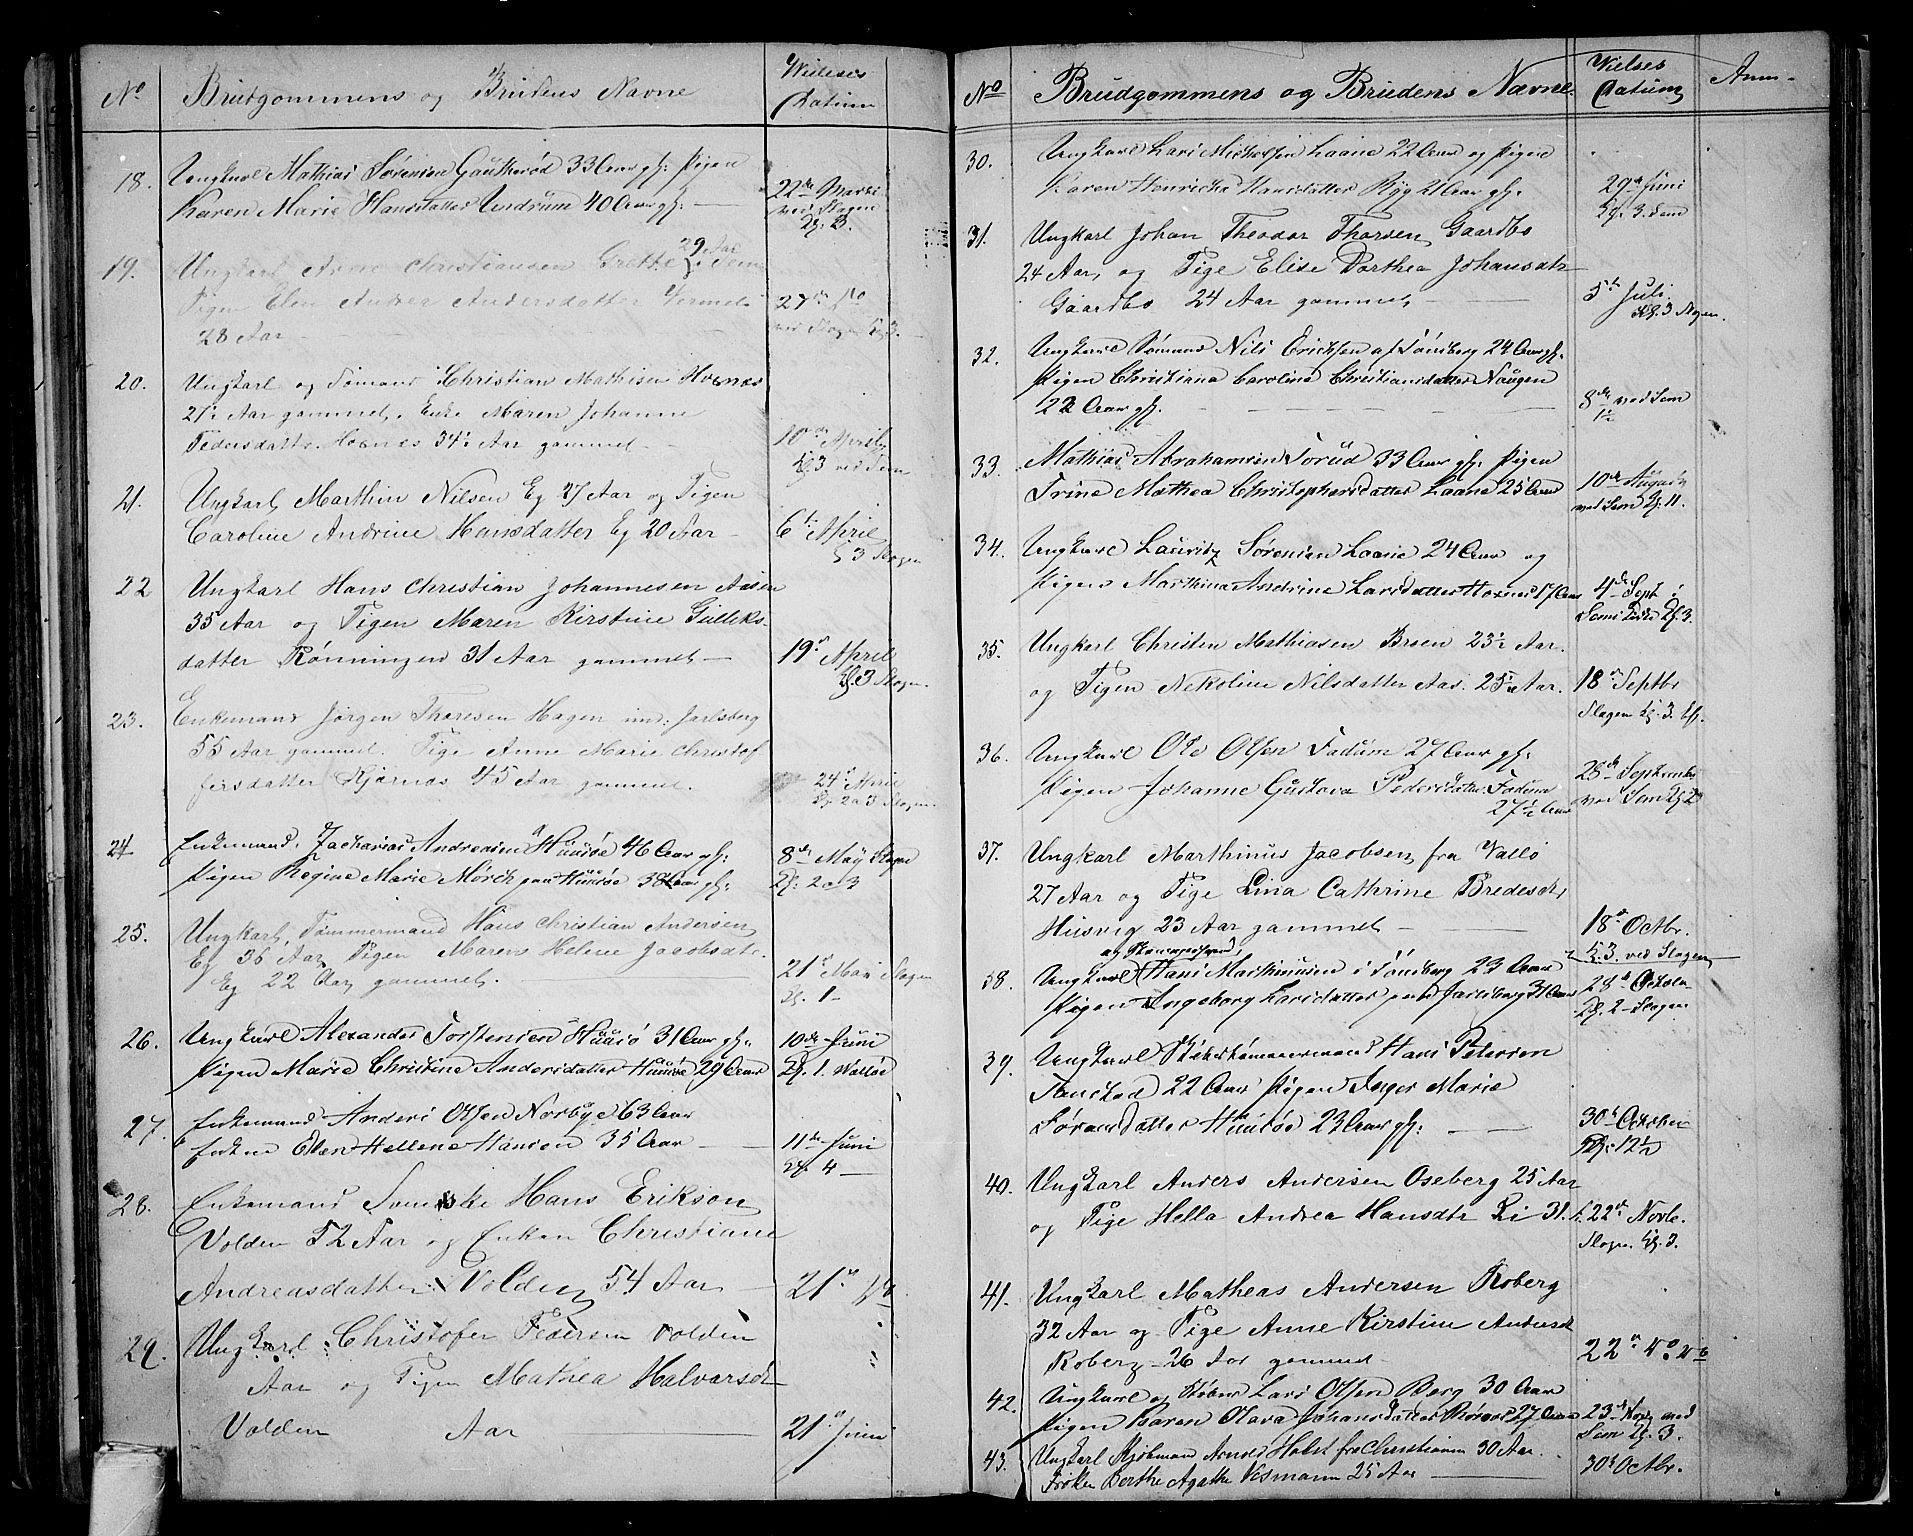 No Brudgommens og Brudens Navne Vielses Datum
18. Ungkarl Mathias Sørensen Gautherød 33 Aar gl: Pigen
Karen Marie Hansdatter Undrum 40 Aar gl:
22de Marts
ved Slagen
Kl. 3.
19. Ungkarl Arne Christiansen Grette 29 Aar
Pigen Elen Andrea Andersdatter
28 Aar
27de do
ved Slagen Kl 3.
20. Ungkarl og Sømand Christian Mathisen Hognæs
21½ Aar gammel. Enke Maren Johanne
Pedersdatter Hognæs 34½ Aar gammel
10de April
Kl 3 ved Sem
21. Ungkarl Marthin Nilsen Eg 27 Aar og Pigen
Caroline Andrine Hansdatter Eg 20 Aar
6te April
3 Slagen
22 Ungkarl Hans Christian Johannesen Aasen
35 Aar og Pigen Maren Kirstine Gulliks-
datter Rønningen 31 Aar gammel
19de April
Kl. 3 Slagen.
23. Enkemand Jørgen Thoresen Hagen und: Jarlsberg
55 Aar gammel. Pige Anne Marie Christof
fersdatter Kjærnæs 45 Aar gammel.
24de April
Kl 2 a 3 Slagen
24 Enkemand, Zacharias Andreasen Huusøe 46 Aar gl:
Pigen Regine Marie Mörch paa Huusøe 38 Aar gl:
8de May Slagen
Kl. 2 a 3
25. Ungkarl, Tømmermand Hans Christian Andersen
Eg 36 Aar, Pigen Maren Helene Jacobsdtr.
Eg 22 Aar gammel.
21de Mai Slagen
Kl. 1
26. Ungkarl Alexander Torstensen Huusø 31 Aar gl:
Pigen Marie Christine Andersdatter Huusøe 29 Aar
10de Juni
Kl. 1. Valløe
27. Enkemand Anders Olsen Norbye 63 Aar
Enken Elen Hellene Hansen 35 Aar
11de Juni
Kl. 4
28. Enkemand Svenske Hans Erikson
Volden 52 Aar og Enken Christiane
Andreasdatter Volden 54 Aar
21de do
29. Ungkarl Christofer Pedersen Volden
Aar og Pigen Mathea Halvorsdt
Volden Aar
21de Juni
No Brudgommens og Brudens Navne. Vielses Datum Anm-
30. Ungkarl Lars Michelsen Laane 22 Aar og Pigen
Karen Henricha Hansdatter Ryg 21 Aar gl.
29de Juni
Kl. 3. Sem
31. Ungkarl Johan Theodor Thorsen Gaardbo
24 Aar, og Pige Elise Dorthea Johansdtr
Gaardbo 24 Aar gammel,
5te Juli.
Kl. 3 Slagen.
32. Ungkarl Sømand Nils Erichsen af Tönsberg 24 Aar gl:
Pigen Christiana Caroline Christiansdatter Haugen
22 Aar gl.
8de ved Sem
1½
33. Mathias Abrahamsen Torud 33 Aar gl: Pigen
Trine Mathea Christophersdatter Laane 25 Aar
10de August
ved Sem Kl. 11.
34. Ungkarl Lauritz Sørensen Laane 24 Aar og
Pigen Marthina Andrine Larsdatter Hognæs 17 Aar
4de Sept i
Sems Kirke Kl. 3.
35. Ungkarl Christen Mathiasen Broen 23½ Aar.
og Pigen Nekoline Nilsdatter Aas. 25½ Aar.
18de Septbr
Slagen Kl. 3.
36. Ungkarl Ole Olsen Fadum 27 Aar gl:
Pigen Johanne Gustava Pedersdatter Fadum
27½ Aar
28de September
ved Sem Kl 2
37. Ungkarl Marthinus Jacobsen fra Vallø
27 Aar og Pige Lina Cathrine Bredesdt,
Husvig 23 Aar gammel
18de Octbr.
Kl. 3. ved Slagen
38. Ungkarl Hans Marthinusen i Tönsberg 23 Aar
Pigen Ingeborg Larsdatter Jarlsberg 31 Aar
28de October
Kl. 2 Slagen
39. Ungkarl Skibstømmermand Hans Petersen
Tanstad 22 Aar Pigen Inger Marie
Sørensdatter Huusøe 23 Aar gl:
30te October
Kl: 12½
40. Ungkarl Anders Andersen Oseberg 25 Aar
og Pige Hella Andrea Hansdtr Ri 31.
22de Novbr.
Slagen Kl. 3.
41. Ungkarl Matheas Andersen Roberg
32 Aar og Pige Anne Kirstine Andersdt
Roberg 26 Aar gammel
22de Nov
42. Ungkarl og Skober Lars Olsen Berg 30 Aar
Pigen Karen Olava Johansdatter 27 Aar
23de Nov ved
Sem Kl. 3.
43. Ungkarl Kjøbmand Arnold Holst fra Christiania 30 Aar.
Frøken Berthe Agathe Vismann 25 Aar
30te Octbr.